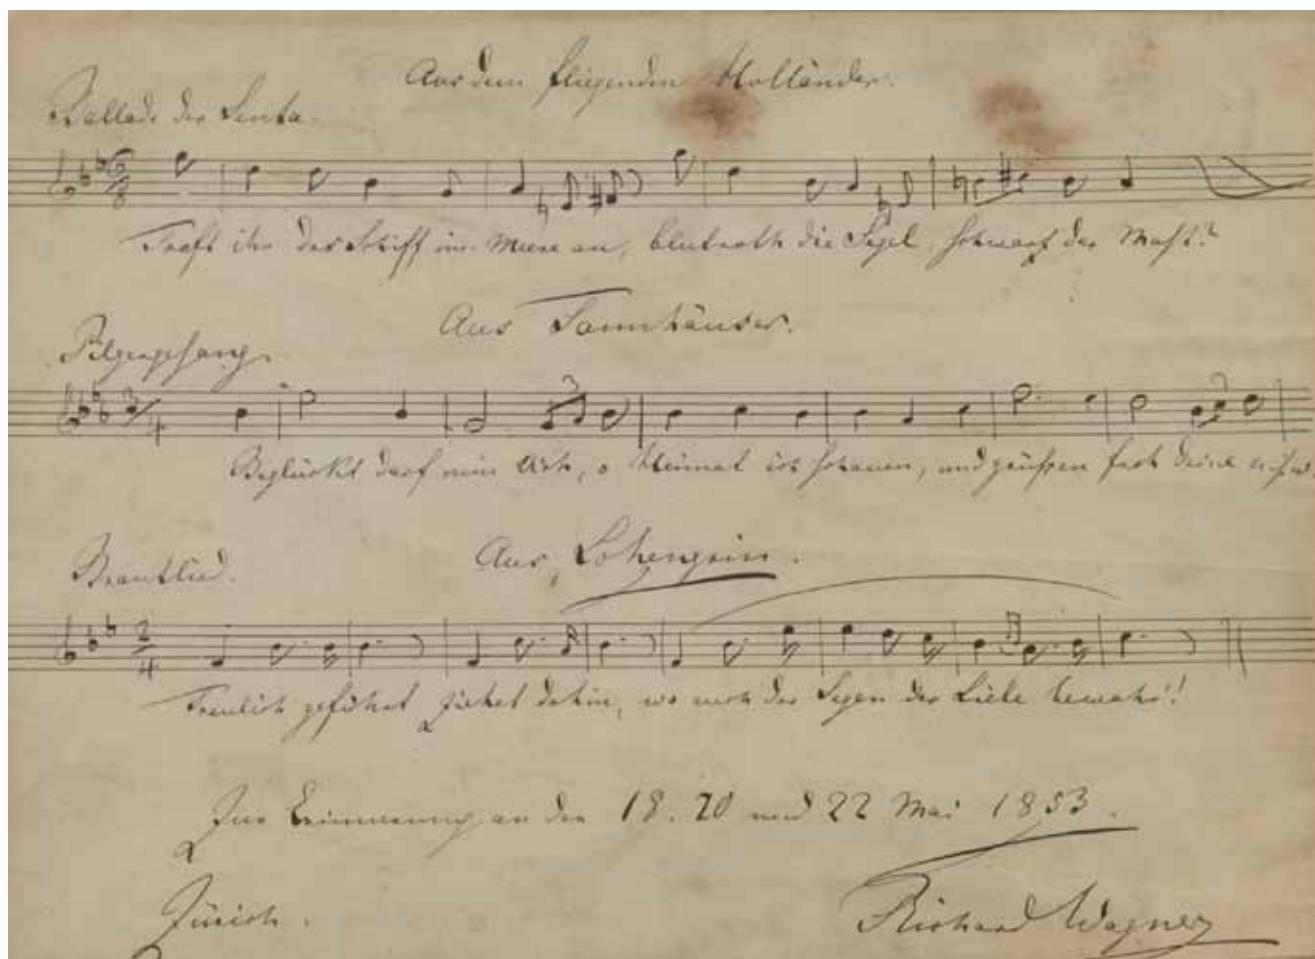 Aus dem fliegenden Holländer.
Ballade der Senta.
6/8
Traft ihr das Schiff im Meere an, blutroth die Segel, schwarz der Mast?
Aus Tannhäuser.
Pilgergesang.
3/4
Beglückt darf nun dich, o Heimat ich schauen, und grüssen froh deine u.s.w.
Aus Lohengrin.
Brautlied.
2/4
Treulich geführt ziehet dahin, wo euch der Segen der Liebe bewahr'!
Zur Erinnerung an den 18. 20 und 22 Mai 1853.
Zürich.
Richard Wagner